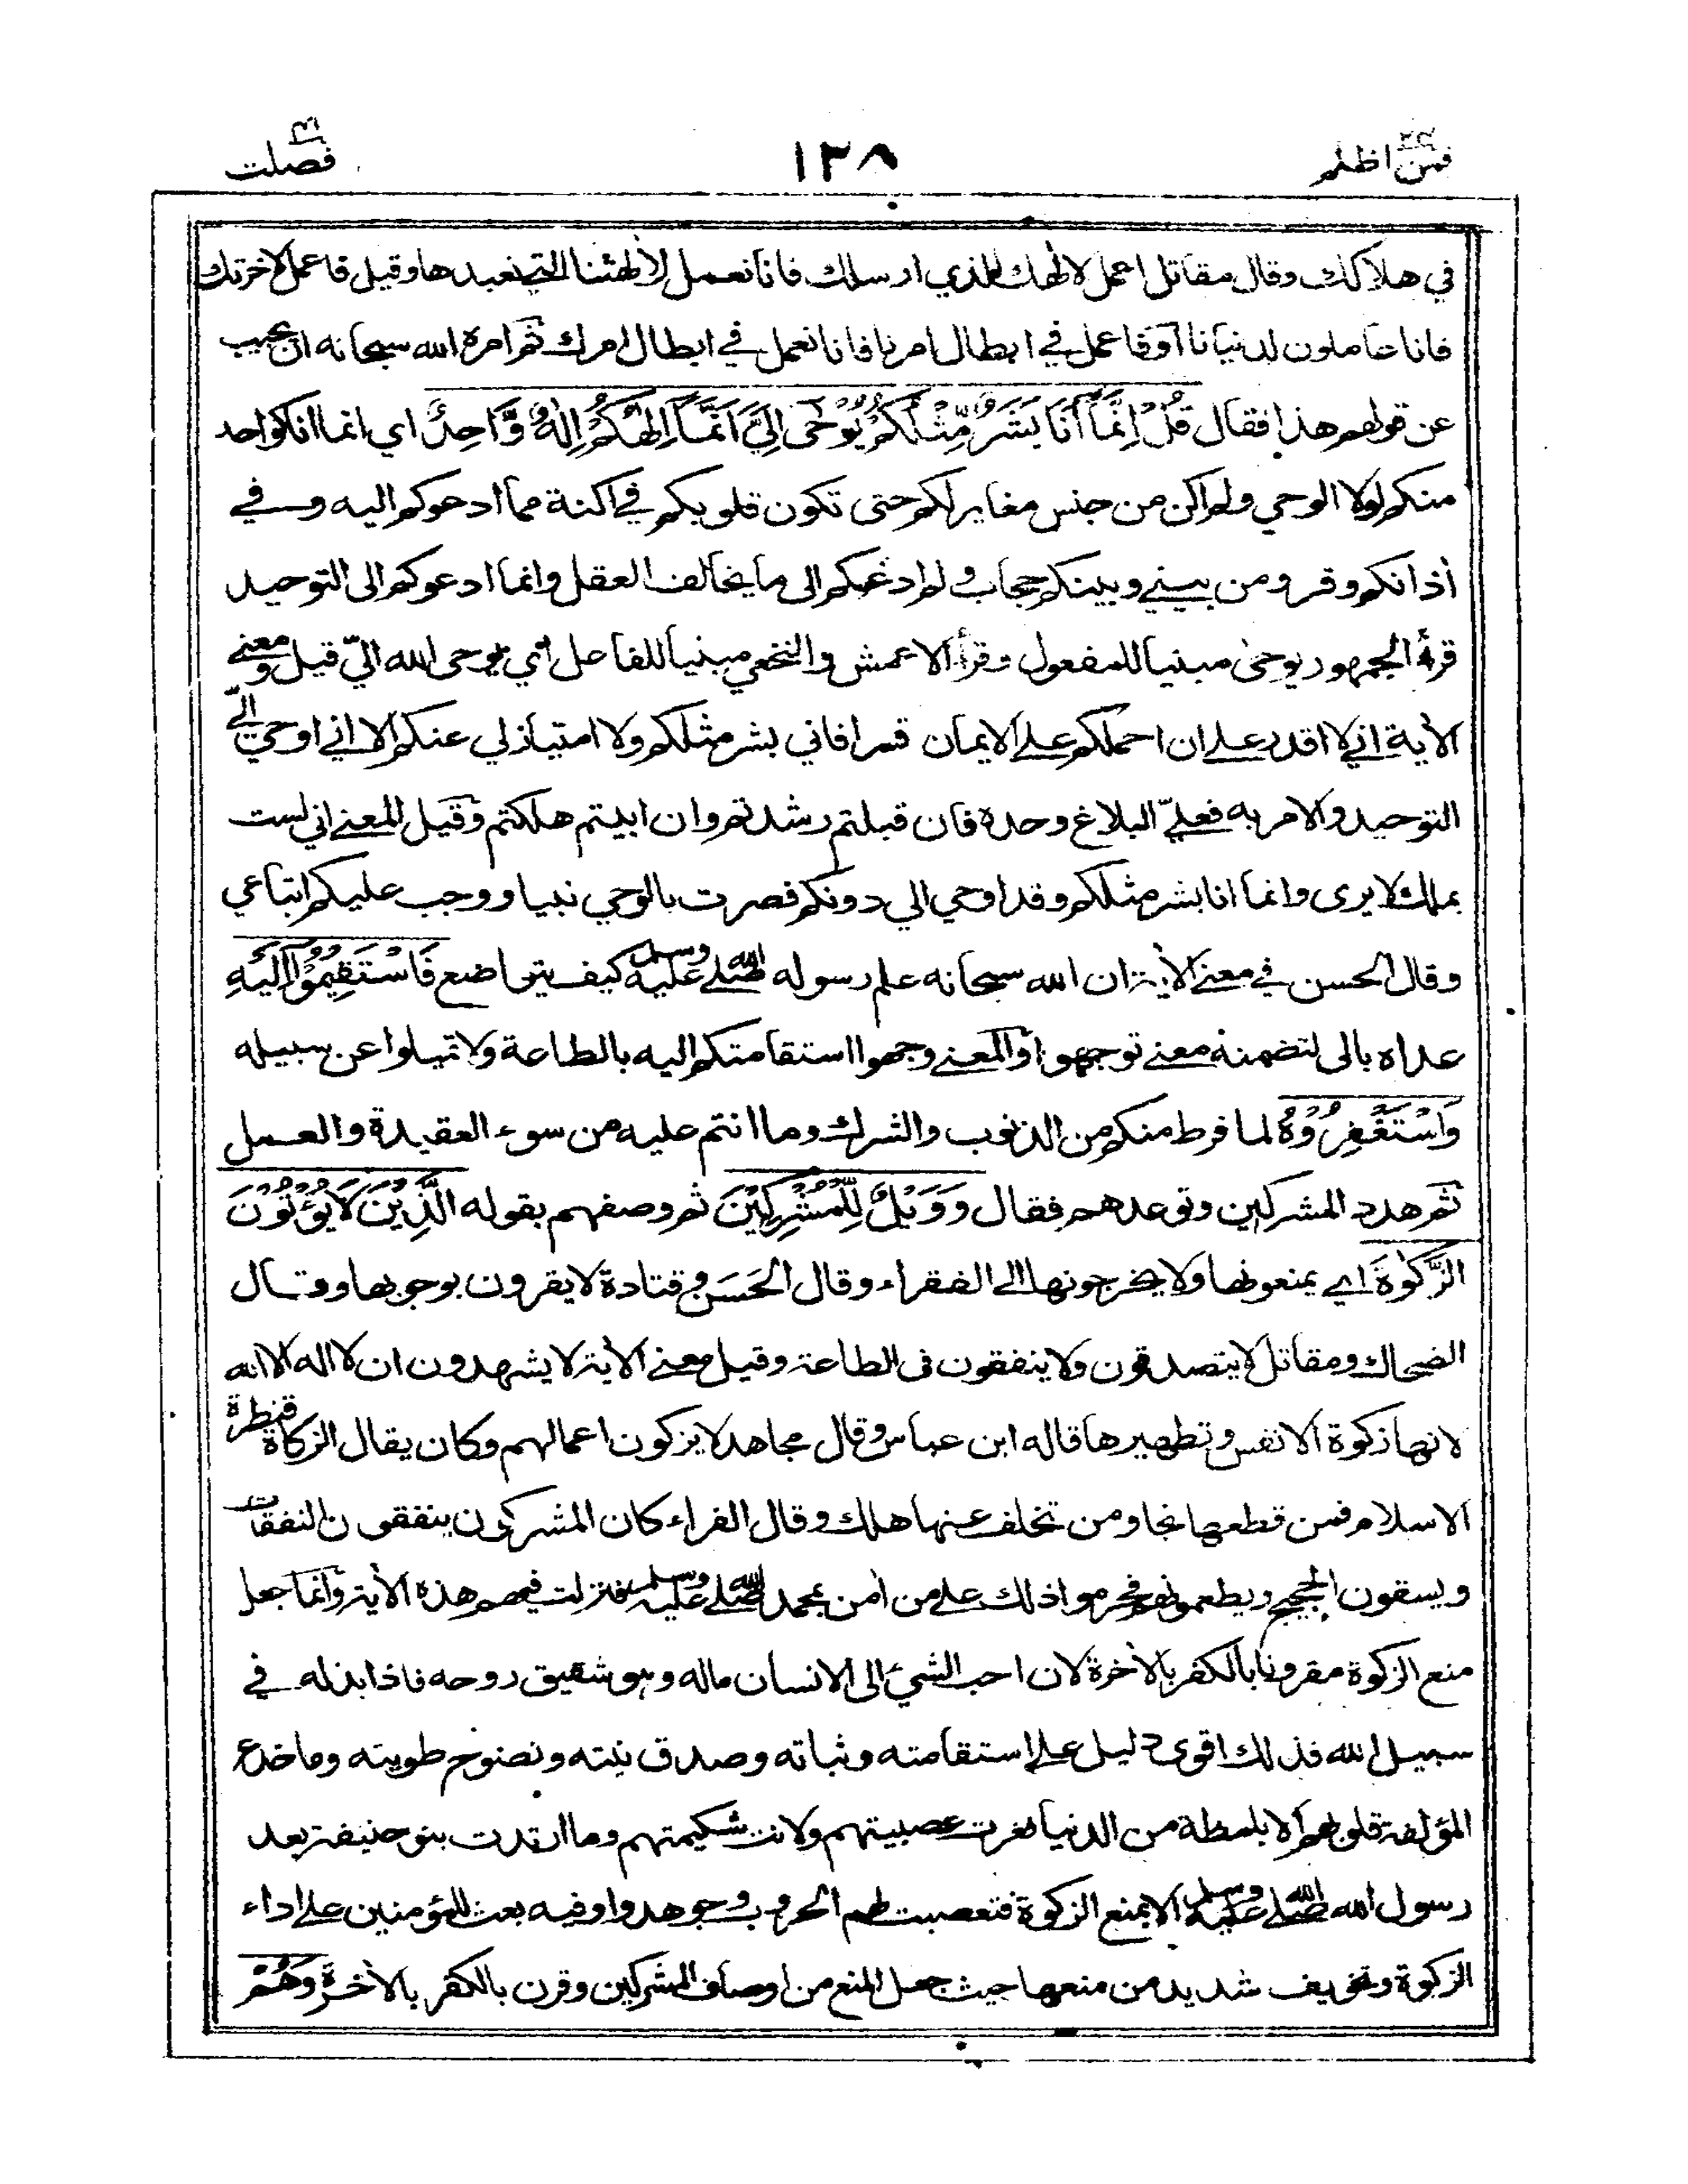 فمن اظلم ٢٤
١٣٨
فصلت ٤١
في هلاكك وقال مقاتل اعمل لالٰهك الذي ارسلك فانا نعمل لاٰلهتنا التي نعبدها وقيل فاعمل لاخرتك
فانا عاملون لدنيانا او فاعمل في ابطال امرنا فانا نعمل في ابطال امرك ثم امره الله سبحانه ان يجيب
عن قولهم هذا فقال قُلْ اِنَّمَآ اَنَا بَشَرٌ مِّثْلُكُمْ يُوْحٰى اِلَيَّ اَنَّمَآ اِلٰهُكُمْ اِلٰهٌ وَّاحِدٌ اي انما انا كواحد
منكم لولا الوحي ولم اكن من جنس مغاير لكم حتى تكون قلوبكم في اكنة مما ادعوكم اليه وفي
أذانكم وقر ومن بيني وبينكم حجاب ولم ادعكم الى ما يخالف العقل وانما ادعوكم الى التوحيد
قرأ الجمهور يوحى مبنيا للمفعول وقرأ الاعمش والنخعي مبنيا للفاعل اي يوحى الله اليّ قيل ومعنى
الأية اني لا اقدر على ان احملكم على الايمان قسرا فاني بشر مثلكم ولا امتياز لي عنكم الا اني اوحي اليّ
التوحيد والامر به فعليّ البلاغ وحده فان قبلتم رشدتم وان ابيتم هلكتم وقيل المعنى اني لست
بملك لا يرى وانما انا بشر مثلكم وقد اوحي الي دونكم فصرت بالوحي نبيا ووجب عليكم اتباعي
وقال الحسن في معنى الأية ان الله سبحانه علم رسوله صلى الله عليه وسلم كيف يتواضع فَاسْتَقِيْمُوْٓا اِلَيْهِ
عداه بالى لتضمنه معنى توجهوا او المعنى وجهوا استقامتكم اليه بالطاعة ولا تميلوا عن سبيله
وَاسْتَغْفِرُوْهُ لما فرط منكم من الذنوب والشرك وما انتم عليه من سوء العقيدة والعمل
ثم هدد المشركين وتوعدهم فقال وَوَيْلٌ لِّلْمُشْرِكِيْنَ ثم وصفهم بقوله الَّذِيْنَ لَا يُؤْتُوْنَ
الزَّكٰوةَ اي يمنعونها ولا يخرجونها الى الفقراء وقال الحَسَن وقتادة لا يقرون بوجوبها وقال
الضحاك ومقاتل لا يتصدقون ولا ينفقون في الطاعة وقيل معنى الأية لا يشهدون ان لا اله الا الله
لانها زكوة الانفس وتطهيرها قاله ابن عباس وقال مجاهد لا يزكون اعمالهم وكان يقال الزكاة قنطرة
الاسلام فمن قطعها نجا ومن تخلف عنها هلك وقال الفراء كان المشركون ينفقون النفقات
ويسقون الحجيج ويطعمونهم فحرموا ذلك على من أمن بمحمد صلى الله عليه وسلم فنزلت فيهم هذه الأية وانما جعل
منع الزكوة مقرونا بالكفر بالأخرة لان احب الشيء الى الانسان ماله وهو شقيق روحه فاذا بذله في
سبيل الله فذلك اقوى دليل على استقامته وثباته وصدق نيته ونصوح طويته وما خدع
المؤلفة قلوبهم الا بلمظة من الدنيا فقرت عصبيتهم ولانت شكيمتهم وما ارتدت بنو حنيفة بعد
رسول الله صلى الله عليه وسلم الا بمنع الزكوة فتعصبت لهم الحروب وجوهدوا وفيه بعث للمؤمنين على اداء
الزكوة وتخويف شديد من منعها حيث جعل المنع من اوصاف المشركين وقرن بالكفر بالأخرة وَهُمْ